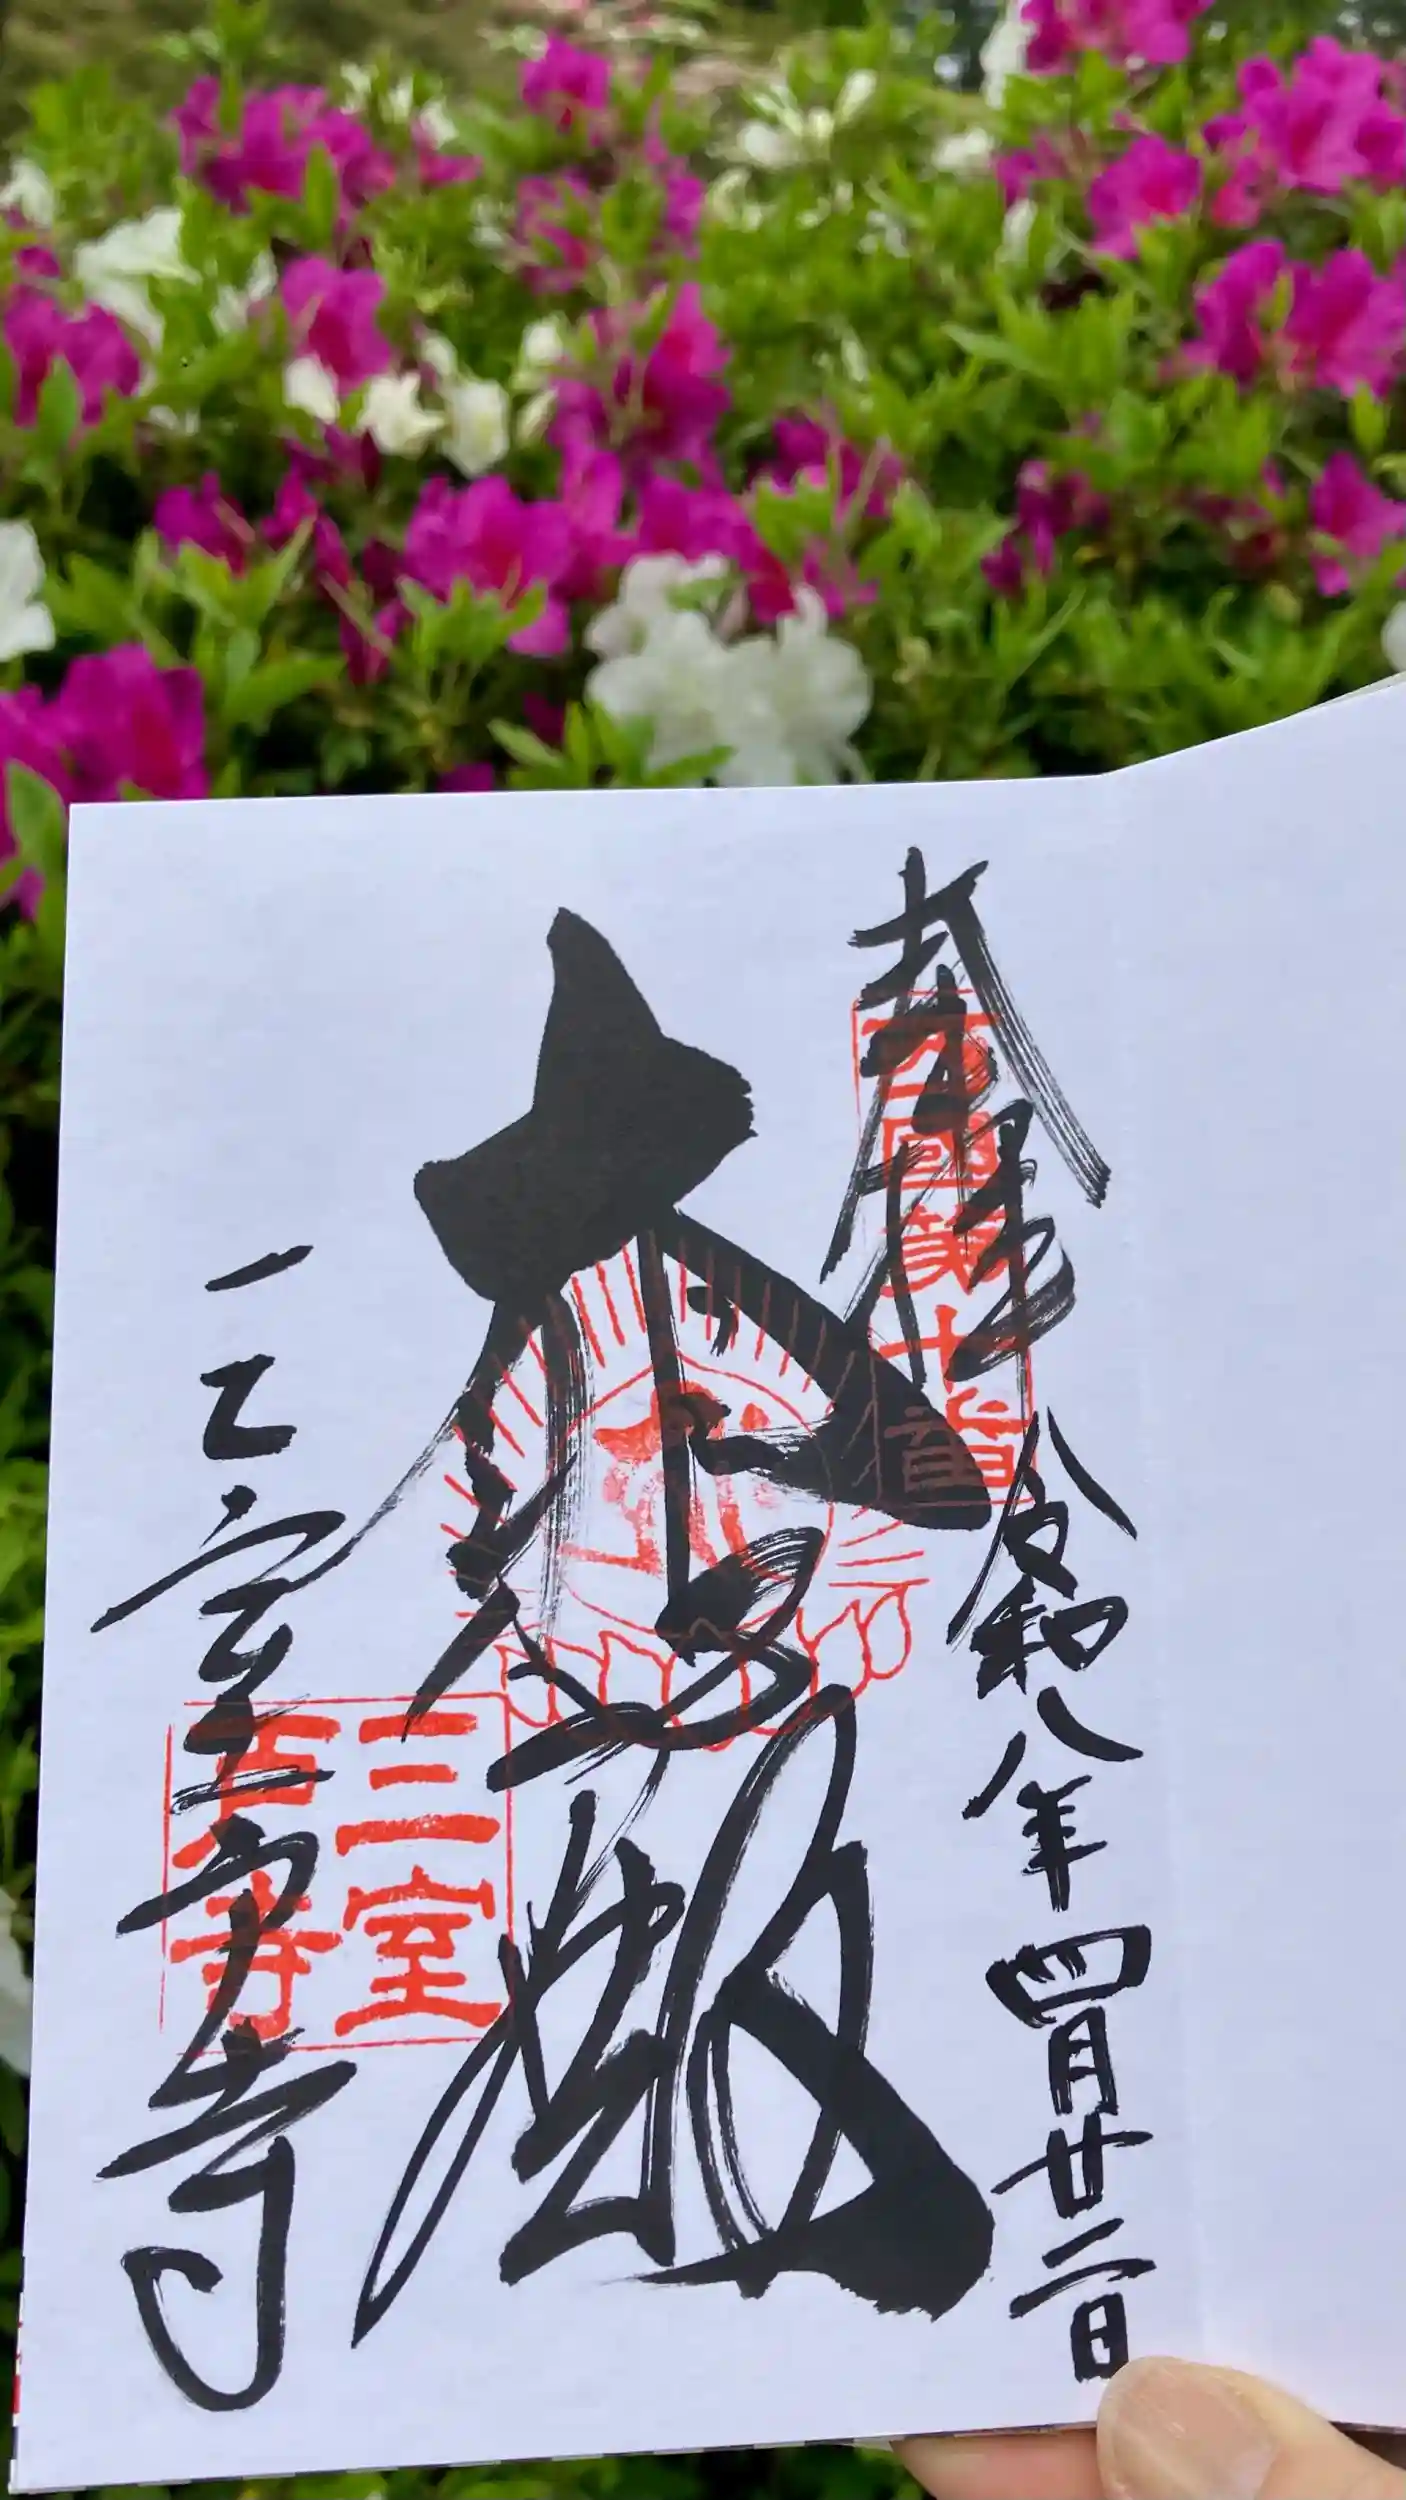 奉拝
西國第十番
令和八年四月廿二日
三室戸寺
三室
戸寺